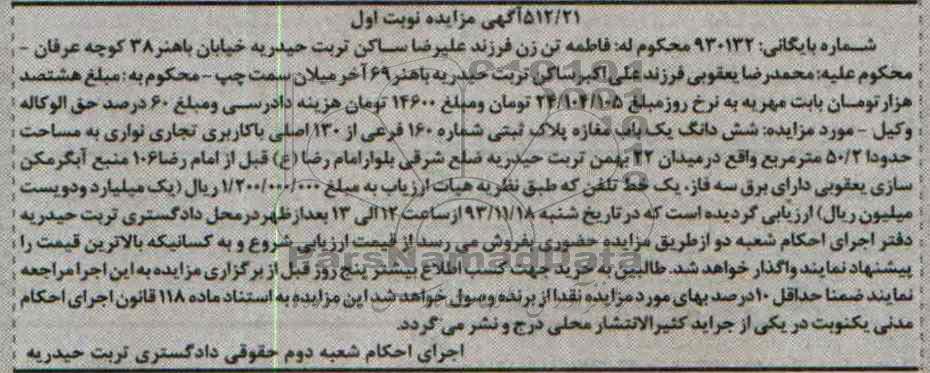 ۵۱۲/۲۱آگهی مزایده نوبت اول
شماره بایگانی: ۹۳۰۱۳۲ محکوم له: فاطمه تن زن فرزند علیرضا ساکن تربت حیدریه خیابان باهنر۳۸ کوچه عرفان –
محکوم علیه: محمدرضا یعقوبی فرزند علی اکبر ساکن تربت حیدریه باهنر۶۹ آخر میلان سمت چپ – محکوم به: مبلغ هشتصد
هزار تومان بابت مهریه به نرخ روز مبلغ ۲۴/۱۰۴/۱۰۵ تومان ومبلغ ۱۴۶۰۰ تومان هزینه دادرسی ومبلغ ۶۰ درصد حق الوکاله
وکیل – مورد مزایده: شش دانگ یک باب مغازه پلاک ثبتی شماره ۱۶۰ فرعی از ۱۳۰ اصلی باکاربری تجاری نواری به مساحت
حدودا ۵۰/۲ مترمربع واقع در میدان ۲۲ بهمن تربت حیدریه ضلع شرقی بلوار امام رضا (ع) قبل از امام رضا۱۰۶ منبع آبگرمکن
سازی یعقوبی دارای برق سه فاز، یک خط تلفن که طبق نظریه هیات ارزیاب به مبلغ ۱/۲۰۰/۰۰۰/۰۰۰ ریال (یک میلیارد ودویست
میلیون ریال) ارزیابی گردیده است که در تاریخ شنبه ۹۳/۱۱/۱۸ ازساعت ۱۲الی ۱۳ بعدازظهر درمحل دادگستری تربت حیدریه
دفتر اجرای احکام شعبه دو ازطریق مزایده حضوری بفروش می رسد از قیمت ارزیابی شروع و به کسانیکه بالاترین قیمت را
پیشنهاد نمایند واگذار خواهد شد. طالبین به خرید جهت کسب اطلاع بیشتر پنج روز قبل از برگزاری مزایده به این اجرا مراجعه
نمایند ضمنا حداقل ۱۰درصد بهای مورد مزایده نقدا از برنده وصول خواهد شد این مزایده به استناد ماده ۱۱۸ قانون اجرای احکام
مدنی یکنوبت در یکی از جراید کثیرالانتشار محلی درج و نشر می گردد.
اجرای احکام شعبه دوم حقوقی دادگستری تربت حیدریه
ParsNamadData